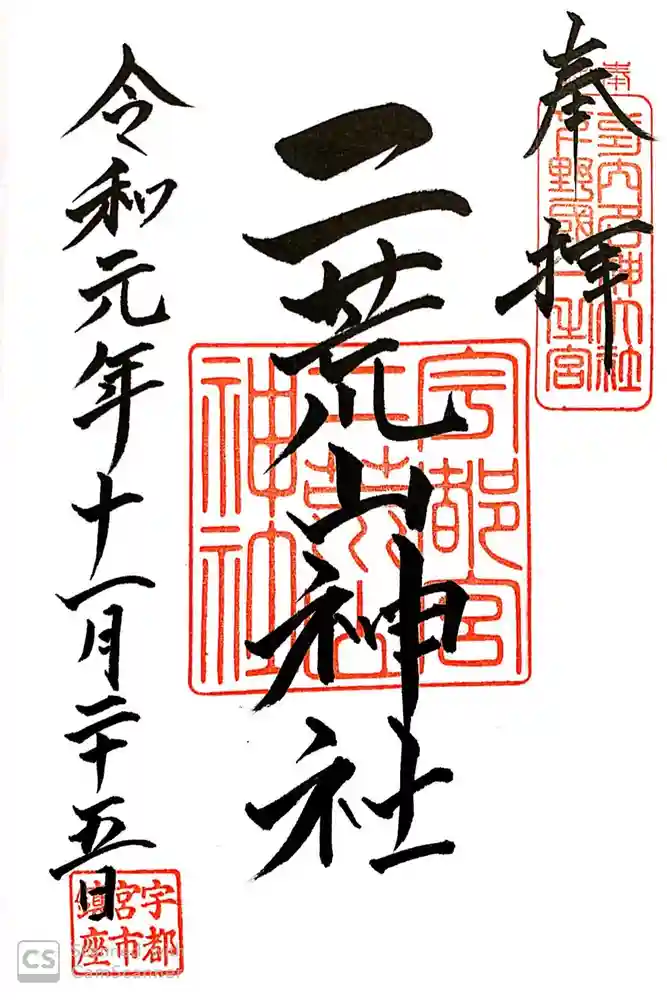 奉拝
延喜式内名神大社
下野國一之宮
二荒山神社
宇都宮
二荒山
神社
令和元年十一月二十五日
宇都
宮市
鎮座
CS
CamScanner